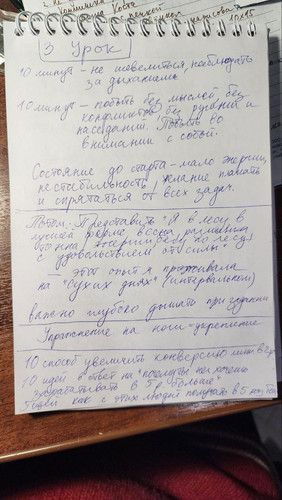 10х15
3 Урок
10 минут - не шевелиться, наблюдать
за дыханием
10 минут - побыть без мыслей, без
конфликтов, без ругани и
наседаний. Побыть во
внимании с собой.
Состояние до старта - мало энергии,
нестабильность, желание поспать
и спрятаться от всех задач.
Потом: Представить "Я в лесу в
лучшей форме, весна, разминка
бегу по лесу
с удовольствием от силы"
этот опыт я проживала
на "сухих днях" (интервальном)
важно глубоко дышать при
Упражнение на ноги - укрепление
10 способ увеличить конверсию в 2 р
10 идей в ответ на
зарабатывать в 5 р. больше"
как с этих людей получать в 5